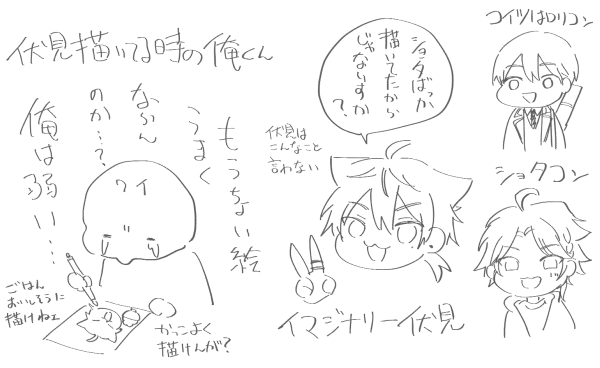 伏見描いてる時の俺くん
もうちょい絵
うまく
なん[?]
のか…?
俺は弱い…
ワイ
ごはん
おいしそうに
描けねェ
かっこよく
描けんが?
ショタばっか
描いてたから
じゃないすか
?
伏見は
こんなこと
言わない
イマジナリー伏見
コイツはロリコン
ショタコン